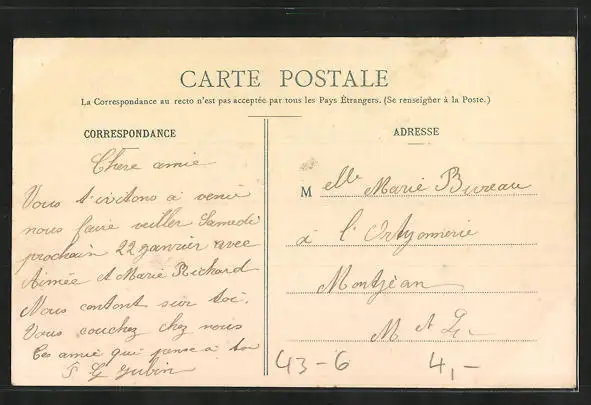 CARTE POSTALE
La Correspondance au recto n'est pas acceptée par tous les Pays Étrangers. (Se renseigner à la Poste.)
CORRESPONDANCE
Chere amie
Vous t'ivitons a venir
nous faire veiller Samedi
prochain 22 janvier avec
Aimée et Marie Richard
Nous contont sur toi.
Vous couchez chez nous
tes amie qui panse a toi
ADRESSE
Melle Marie Bureau
à l'
Montjean
M et L
43-6 4,-